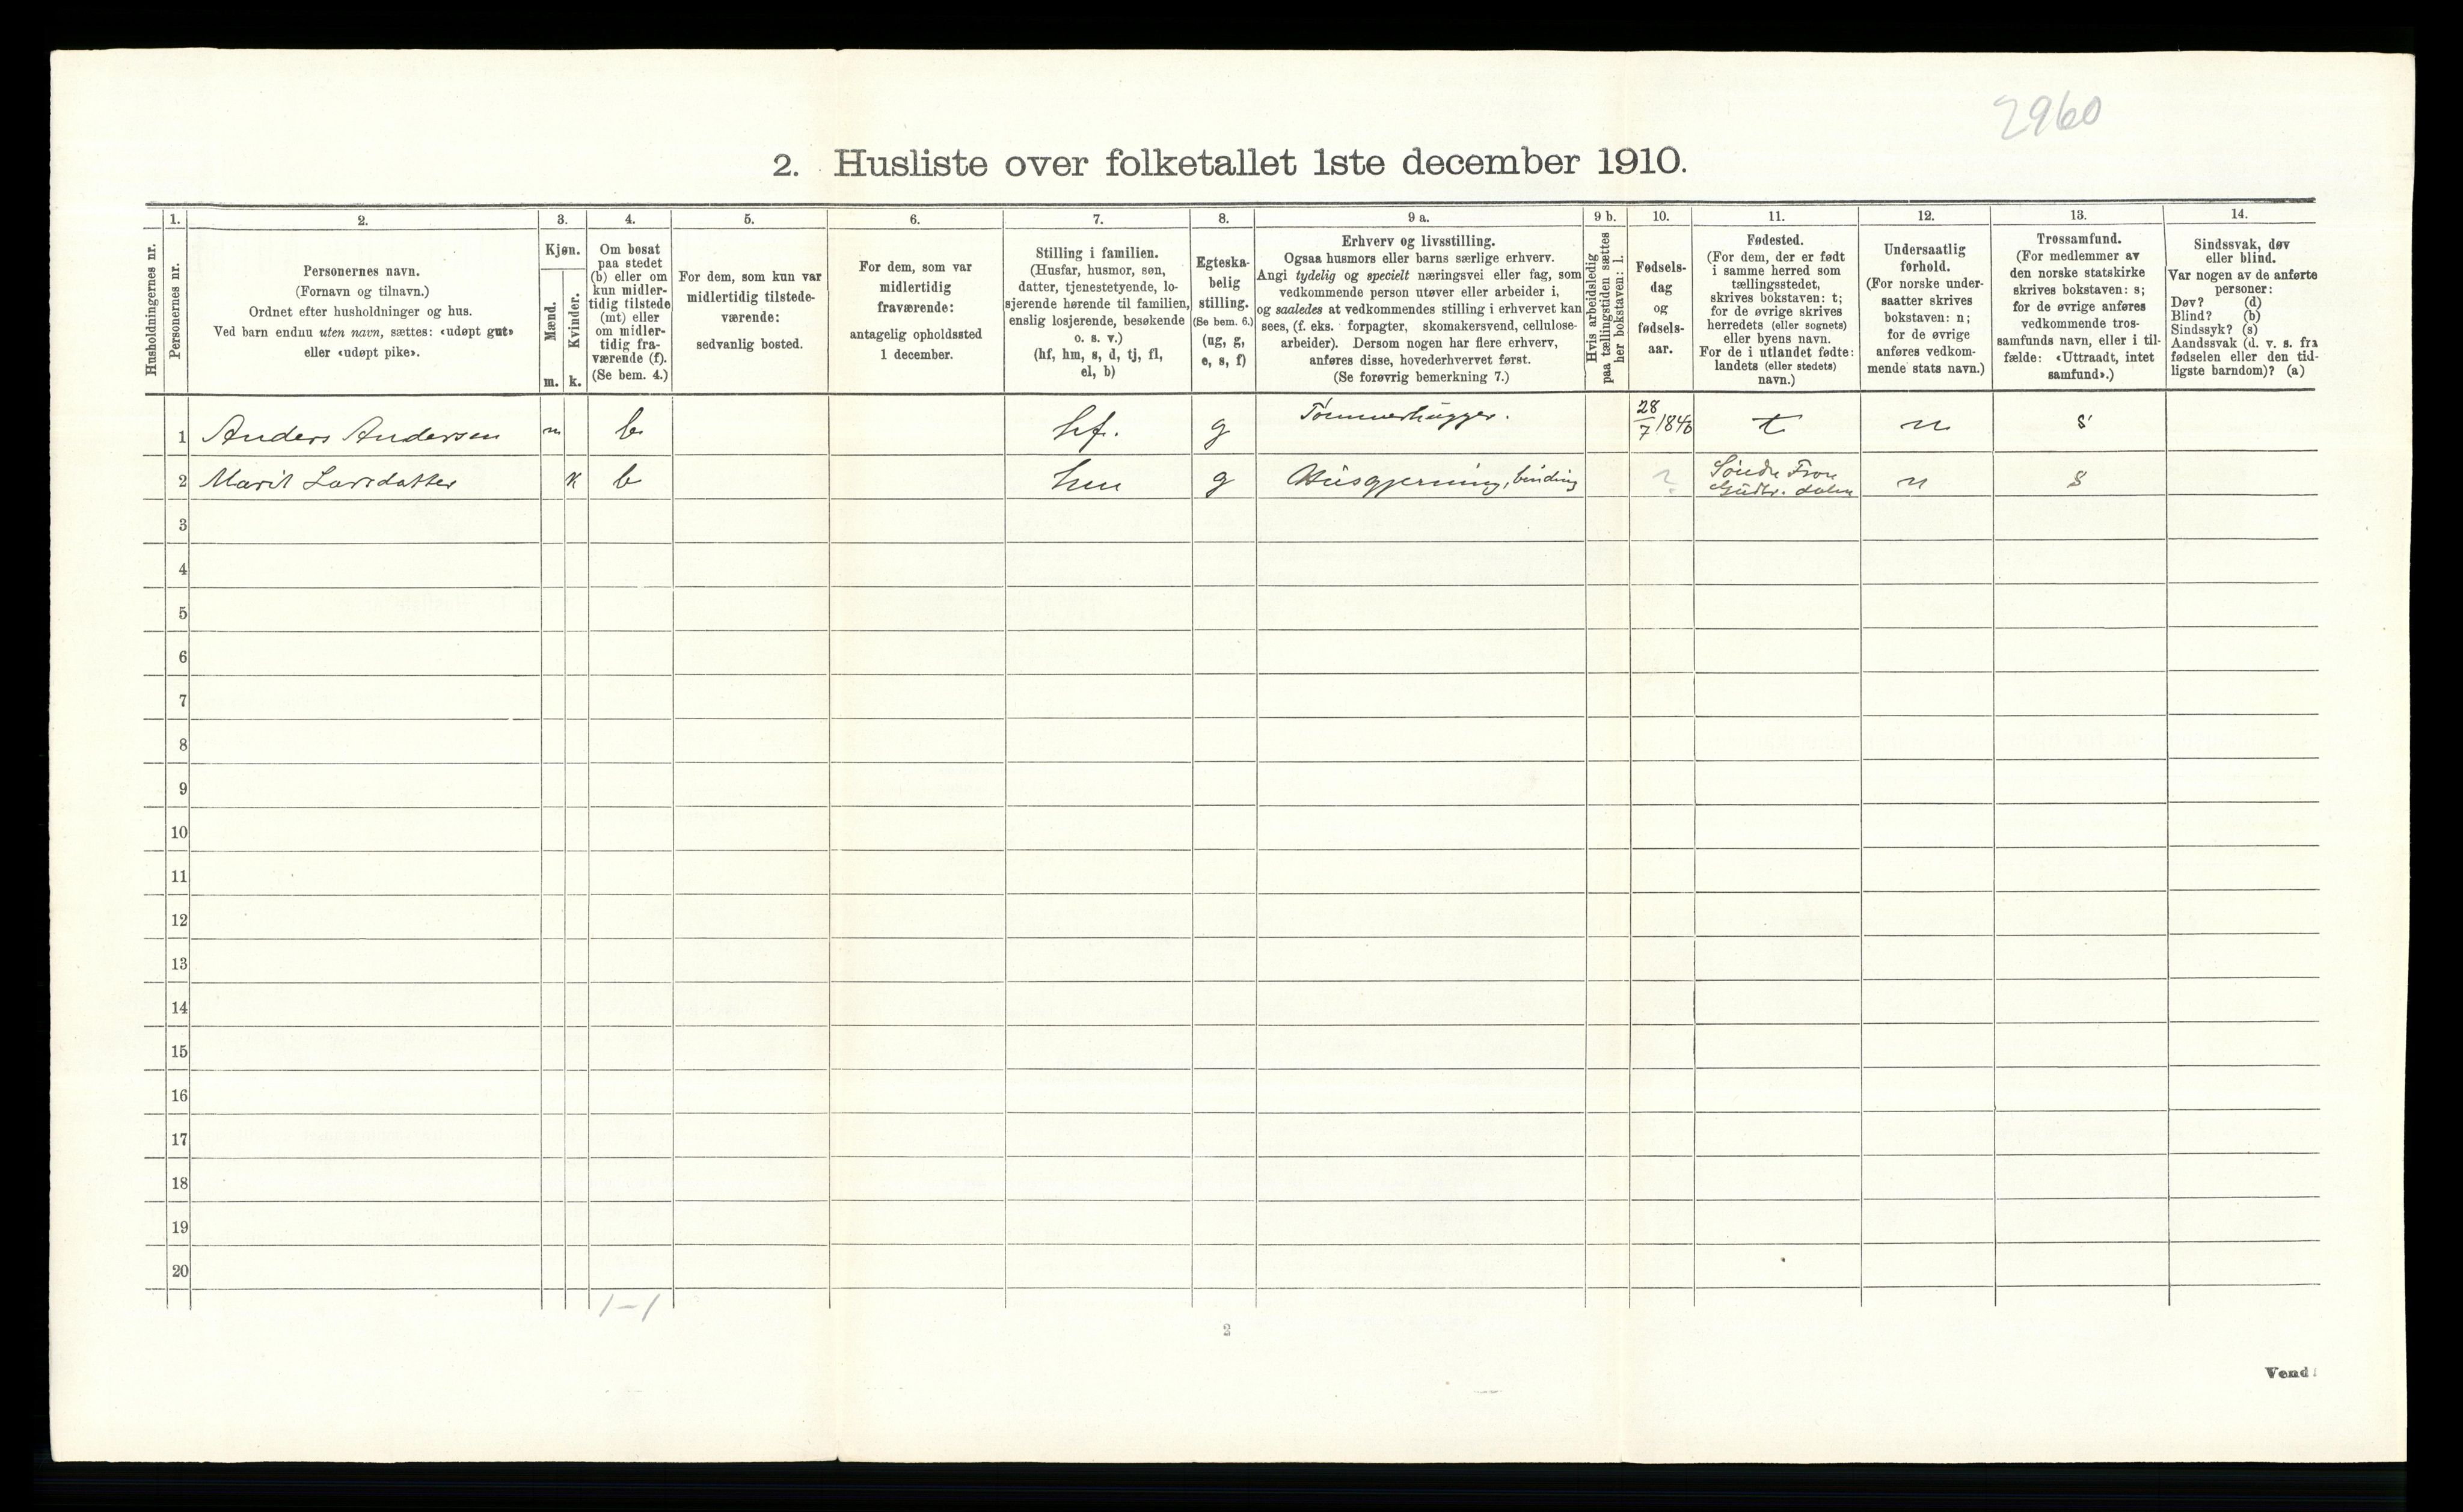 2960
2. Husliste over folketallet 1ste december 1910.
Husholdningernes nr.
1.
Personernes nr.
2.
Personernes navn.
(Fornavn og tilnavn.)
Ordnet efter husholdninger og hus.
Ved barn endnu uten navn, sættes: «udøpt gut»
eller «udøpt pike».
3.
Kjøn.
Mænd.
m.
Kvinder.
k.
4.
Om bosat
paa stedet
(b) eller om
kun midler-
tidig tilstede
(mt) eller
om midler-
tidig fra-
værende (f).
(Se bem. 4.)
5.
For dem, som kun var
midlertidig tilstede-
værende:
sedvanlig bosted.
6.
For dem, som var
midlertidig
fraværende:
antagelig opholdssted
1 december.
7.
Stilling i familien.
(Husfar, husmor, søn,
datter, tjenestetyende, lo-
sjerende hørende til familien,
enslig losjerende, besøkende
o. s. v.)
(hf, hm, s, d, tj, fl,
el, b)
8.
Egteska-
belig
stilling.
(Se bem. 6.)
(ug, g,
e, s, f)
9 a.
Erhverv og livsstilling.
Ogsaa husmors eller barns særlige erhverv.
Angi tydelig og specielt næringsvei eller fag, som
vedkommende person utøver eller arbeider i,
og saaledes at vedkommendes stilling i erhvervet kan
sees, (f. eks. forpagter, skomakersvend, cellulose-
arbeider). Dersom nogen har flere erhverv,
anføres disse, hovederhvervet først.
(Se forøvrig bemerkning 7.)
9 b.
Hvis arbeidsledig
paa tællingstiden sættes
her bokstaven: l.
10.
Fødsels-
dag
og
fødsels-
aar.
11.
Fødested.
(For dem, der er født
i samme herred som
tællingsstedet,
skrives bokstaven: t;
for de øvrige skrives
herredets (eller sognets)
eller byens navn.
For de i utlandet fødte:
landets (eller stedets)
navn.)
12.
Undersaatlig
forhold.
(For norske under-
saatter skrives
bokstaven: n;
for de øvrige
anføres vedkom-
mende stats navn.)
13.
Trossamfund.
(For medlemmer av
den norske statskirke
skrives bokstaven: s;
for de øvrige anføres
vedkommende tros-
samfunds navn, eller i til-
fælde: «Uttraadt, intet
samfund».)
14.
Sindssvak, døv
eller blind.
Var nogen av de anførte
personer:
Døv? (d)
Blind? (b)
Sindssyk? (s)
Aandssvak (d. v. s. fra
fødselen eller den tid-
ligste barndom)? (a)
1 Anders Andersen m b hf. g Tømmerhugger. 28/7 1840 t n s
2 Marit Larsdatter k b hm g Husgjerning, binding ? Søndre Fron
Gudbr. dalen n s
3
4
5
6
7
8
9
10
11
12
13
14
15
16
17
18
19
20
1–1
2
Vend!